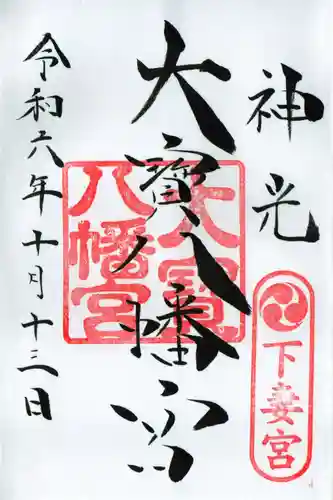 神光
下妻宮
大寶八幡宮
大寶
八幡宮
令和六年十月十三日